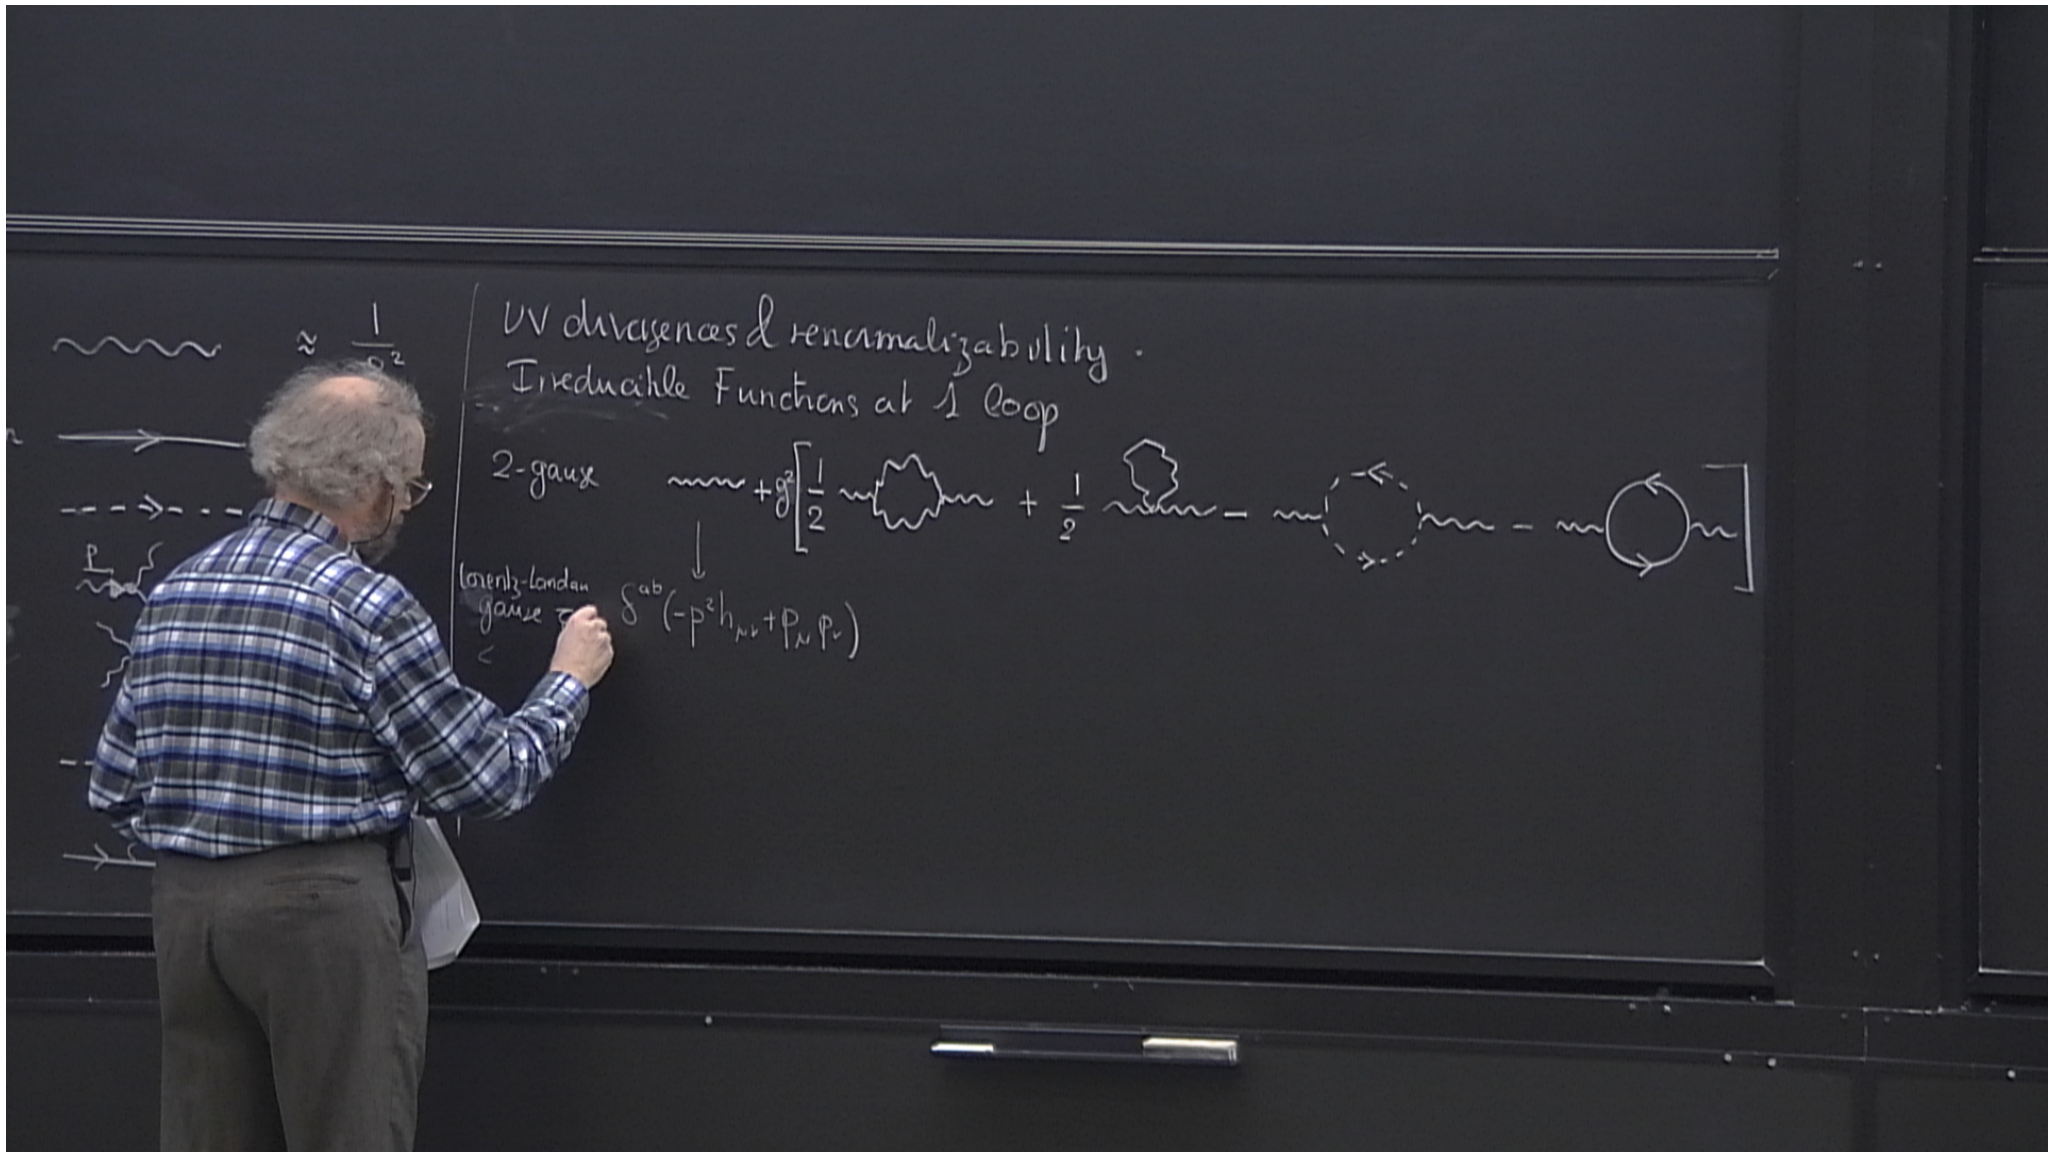 ≈ 1/p²
UV divergences & renormalizability .
Irreducible Functions at 1 loop
2-gauge + g² [ 1/2 + 1/2 - - ]
p
Lorentz-Landau
gauge δᵃᵇ (-p² h_μν + p_μ p_ν)